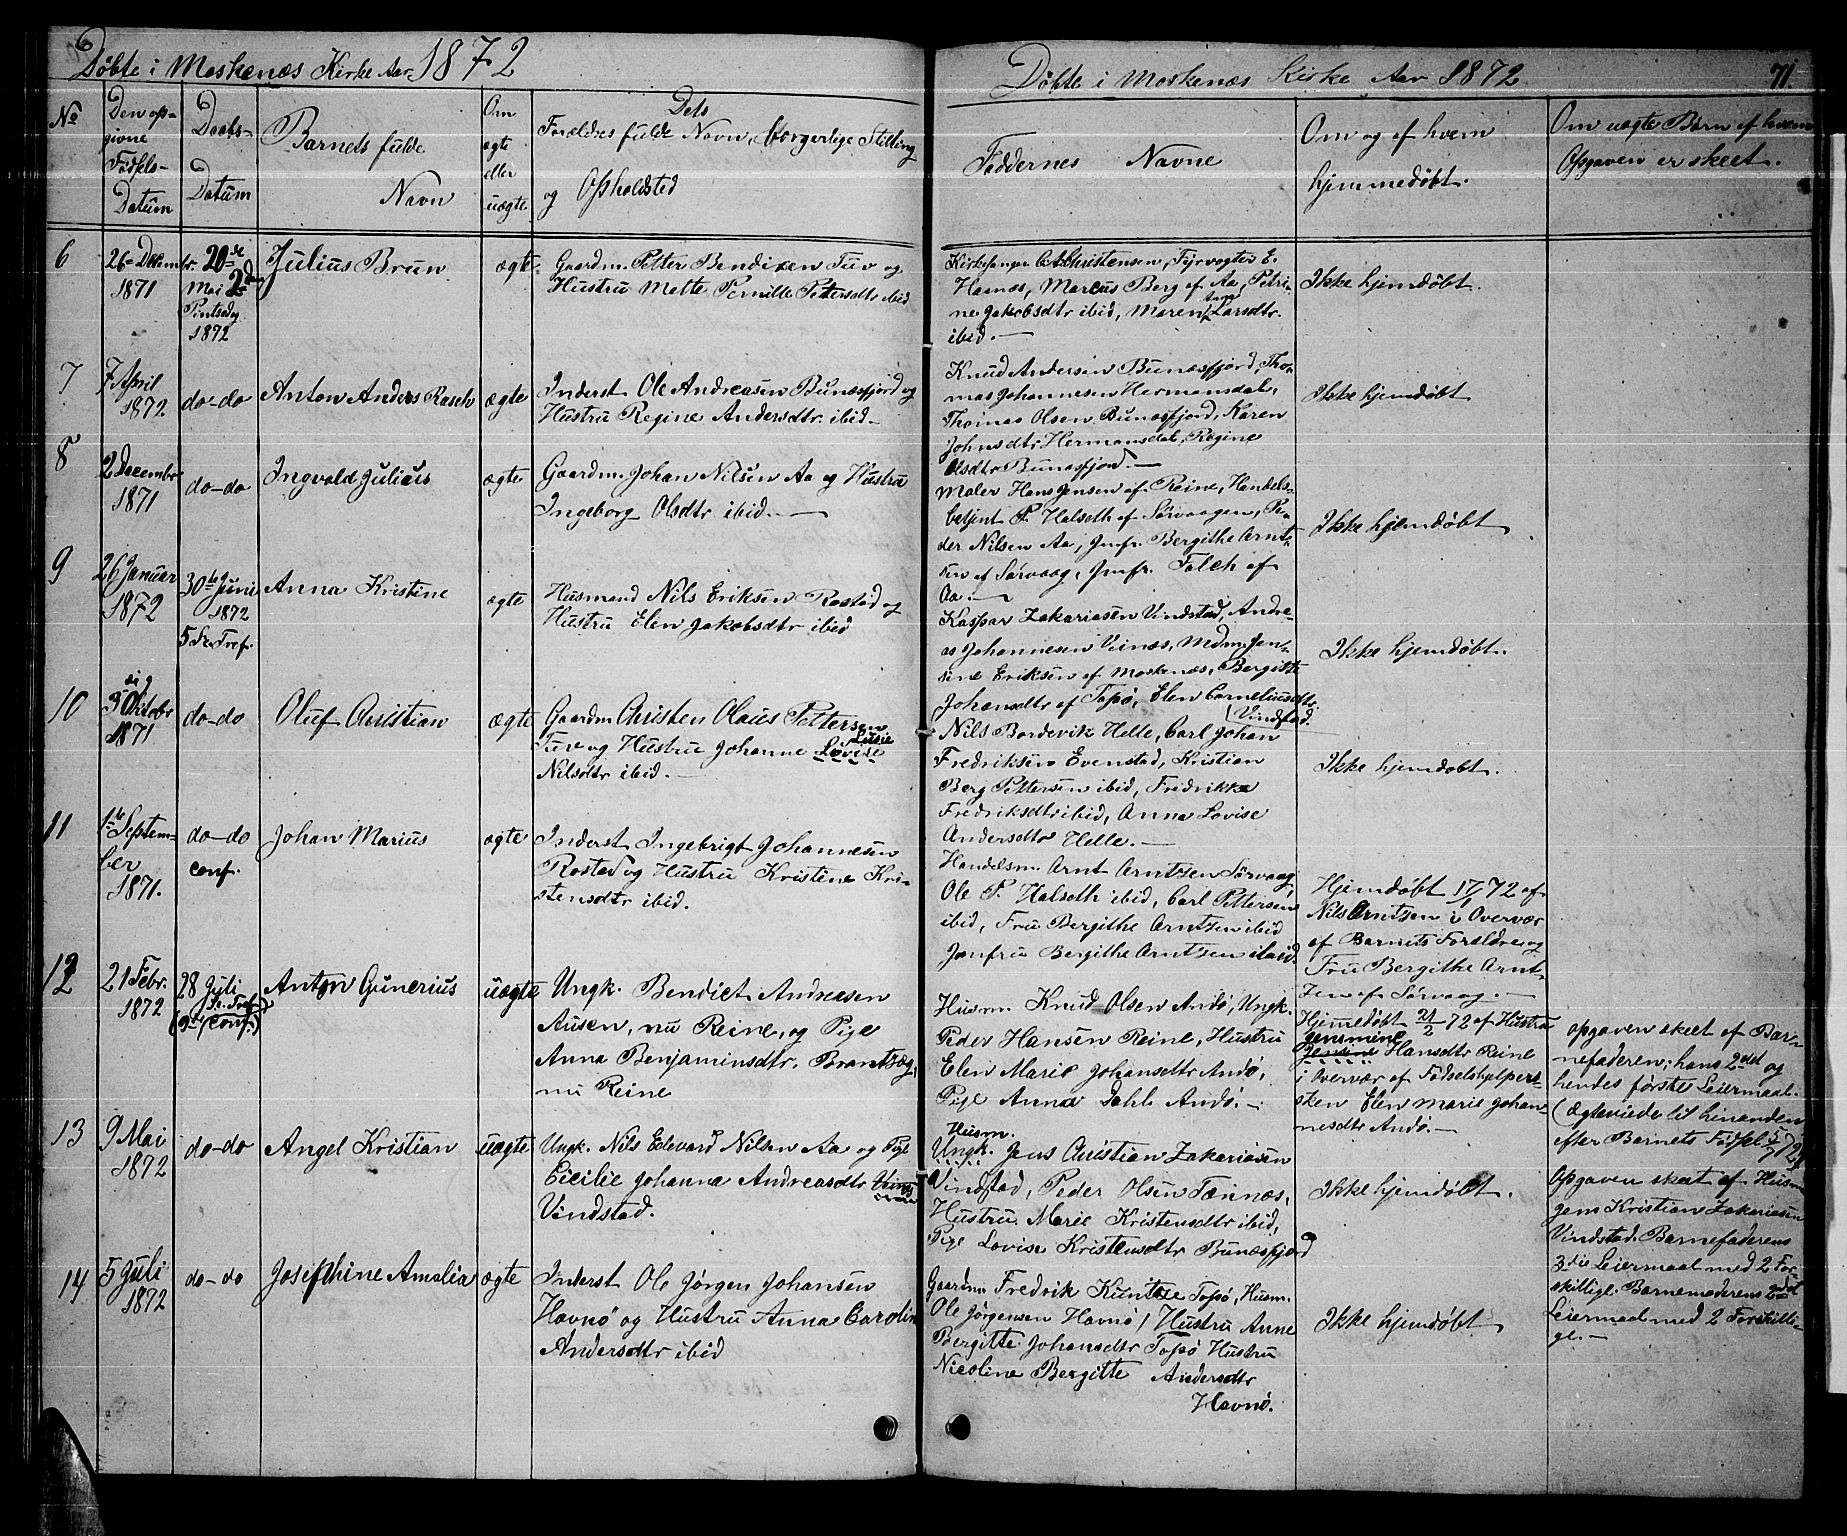 Døbte i Moskenæs Kirke Aar 1872
No
Den op-
givne
Fødsels-
Datum
Daabs-
Datum
Barnets fulde
Navn
Om
ægte
eller
uægte
Dets
Forældres fulde Navn, borgerlige Stilling
og Opholdsted
6
26de Decembr.
1871
20de
Mai 2den
Pintsedag
1872
Julius Brun
ægte
Gaardm. Petter Bendixen Tuv og
Hustru Mette Pernille Petersdtr ibid
7
7 April
1872
do-do
Anton Anders Rasch
ægte
Inderst Ole Andreasen Bunæsfjord og
Hustru Regine Andersdtr. ibid.-
8
2 December
1871
do-do
Ingvald Julius
ægte
Gaardm. Johan Nilsen Aa og Hustru
Ingeborg Olsdtr ibid.-
9
26 Januar
1872
30te Juni
1872
5 S. e. Tref.
Anna Kristine
ægte
Husmand Nils Eriksen Rostad og
Hustru Elen Jakobsdtr ibid
10
3 Oktobr
1871
do-do
Oluf Christian
ægte
Gaardm Christen Olaus Pettersen
Tuv og Hustru Johanne Lovise
Lusie
Nilsdtr ibid.-
11
1ste Septem-
ber
1871.
do-do
conf.
Johan Marius
ægte
Inderst Ingebrigt Johannesen
Rostad og Hustru Kristine Kri-
stensdtr ibid.
12
21 Febr.
1872
28 Juli
(9de S. e. Tref.
(conf.)
Anton Gunerius
uægte
Ungk. Bendict Andreasen
Ausen, nu Reine, og Pige
Anna Benjaminsdtr. Brantsæg,
nu Reine
13
9 Mai
1872
do-do
Angel Kristian
uægte
Ungk. Nils Edevard Nilsen Aa og Pige
Cicilie Johanna Andreasdtr
Vindstad.
14
5 Juli
1872
do-do
Josephine Amalia
ægte
Inderst Ole Jørgen Johansen
Havnø og Hustru Anna Carolin
Andersdtr ibid
Døbte i Moskenæs Kirke Aar 1872
71.
Faddernes Navne
Om og af hvem
hjemmedøbt.
Om uægte Børn af hvem
Opgaven er skeet.
Kirkesanger C.A. Christensen, Fyrvogter E.
Hamæs, Marcus Berg af Aa, Petri-
ne Jakobsdtr ibid, Maren Anna Larsdtr.
ibid.-
Ikke hjemdøbt.
Knud Andersen Bunæsfjord, Tho-
mas Johannesen Hermansdal,
Thomas Olsen Bunæsfjord, Karen
Johnsdtr Hermansdal, Regine
Olsdtr Bunæsfjord.-
Ikke hjemdøbt
Maler Hans Jensen af Reine, Handels-
betjent P. Halseth af Sørvaagen, Pe-
der Nilsen Aa, Jmfr. Bergithe Arnt-
zen af Sørvaag, Jmfr. Falch af
Aa.-
Ikke hjemdøbt
Kaspar Zakariasen Vindstad, Andre-
as Johannesen Veinæs, Mdm Jen-
sine Eriksen af Moskenæs, Bergitte
Johansdtr af Topø, Elen Corneliusdtr.
(Vindstad.
Ikke hjemdøbt.
Nils Bardevik Helle, Carl Johan
Fredriksen Evenstad, Kristian
Berg Pettersen ibid, Fredrikke
Fredriksdtr ibid, Anna Lovise
Andersdtr Helle.-
Ikke hjemdøbt.
Handelsm. Arnt Arntzen Sørvaag,
Ole P. Halseth ibid, Carl Pettersen
ibid, Fru Bergithe Arntzen ibid
Jomfru Bergithe Arntzen ibid.
Hjemdøbt 17/1 72 af
Nils Arntzen i Overvær
af Barnets Forældre og
Fru Bergithe Arnt-
zen af Sørvaag.-
Husm. Knud Olsen Andø, Ungk.
Peder Hansen Reine, Hustru
Elen Marie Johansdtr Andø,
Pige Anna Dahl Andø.-
Hjemedøbt 21/2 72 af Hustru
Jensmine
Jensine Hansdtr Reine
i Overvær af Fødselshjelpers-
sken Elen Marie Johan-
nesdtr Andø.-
Opgaven skeet af Bar-
nefaderen; hans 2det og
hendes første Leiermaal.
(Ægteviede til hinanden
efter Barnets Fødsel 5/7 72.)
Husm.
Ungk. Jens Christian Zakariasen
Vindstad, Peder Olsen Tennæs,
Hustru Marie Kristensdtr ibid,
Pige Lovise Kristensdtr Bunæsfjord
Ikke hjemdøbt.
Opgaven skeet af Husm
Jens Kristian Zakariasen
Vindstad. Barnefaderens
3die Leiermaal med 2 For-
skillige. Barnemoderens 2det
Leiermaal med 2 Forskilli-
ge.-
Gaardm Fredrik Kuntze Topø, Husm.
Ole Jørgensen Havnø, Hustru Anne
Bergitte Johansdtr Topø Hustru
Nicoline Bergitte Andersdtr
Havnø.
Ikke hjemdøbt